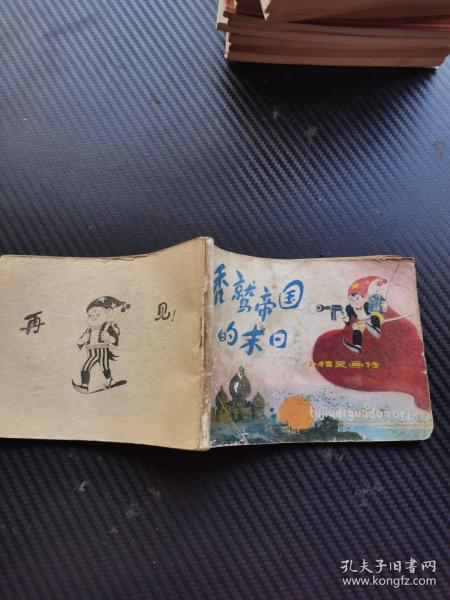 再 见！
秃鹫帝国
的末日
小精灵画传
tujiudiguodemori
孔夫子旧书网
www.kongfz.com